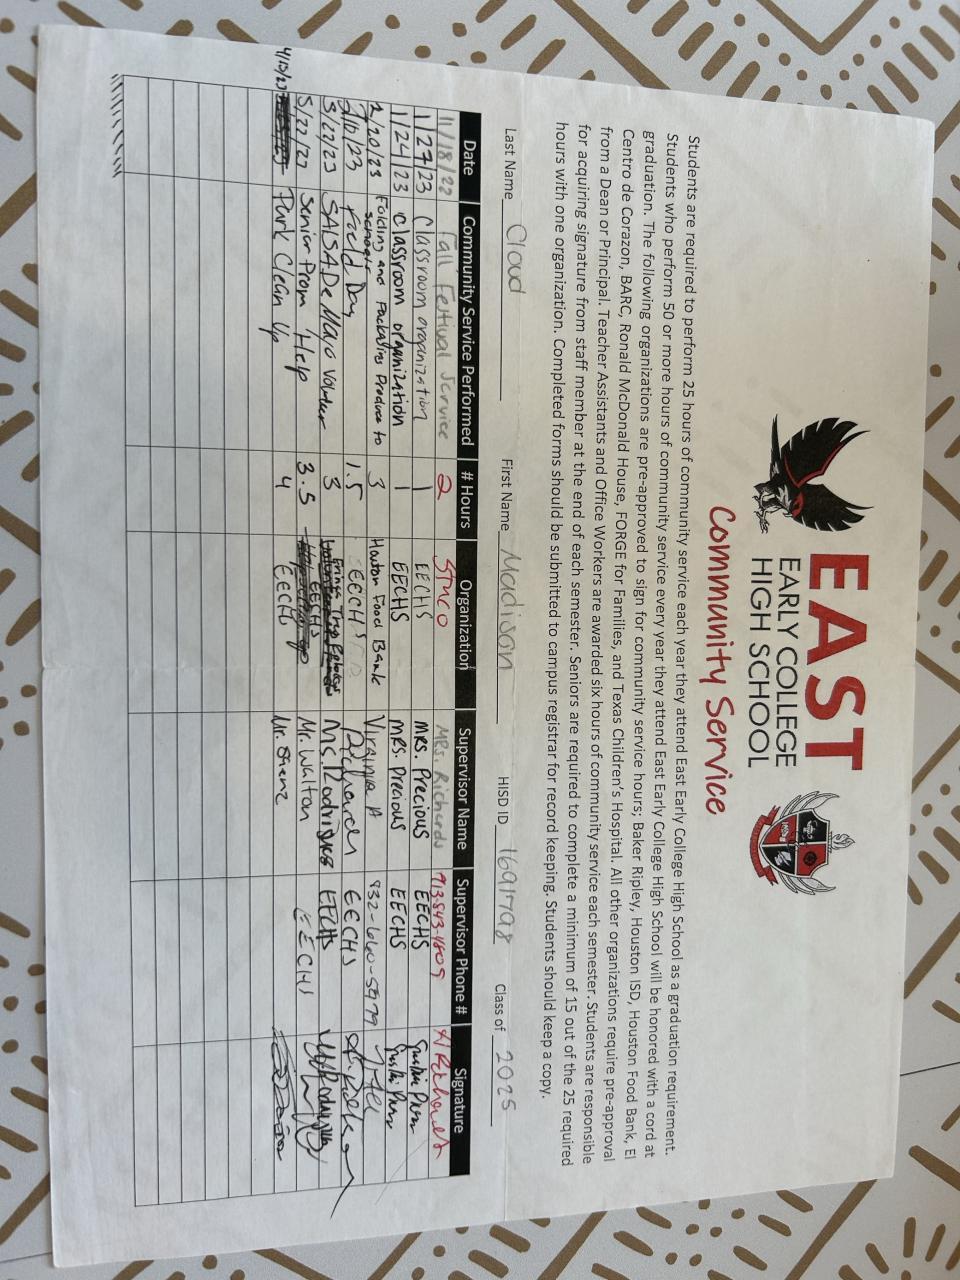 EAST
EARLY COLLEGE
HIGH SCHOOL
Community Service
Students are required to perform 25 hours of community service each year they attend East Early College High School as a graduation requirement.
Students who perform 50 or more hours of community service every year they attend East Early College High School will be honored with a cord at
graduation. The following organizations are pre-approved to sign for community service hours; Baker Ripley, Houston ISD, Houston Food Bank, El
Centro de Corazon, BARC, Ronald McDonald House, FORGE for Families, and Texas Children's Hospital. All other organizations require pre-approval
from a Dean or Principal. Teacher Assistants and Office Workers are awarded six hours of community service each semester. Students are responsible
for acquiring signature from staff member at the end of each semester. Seniors are required to complete a minimum of 15 out of the 25 required
hours with one organization. Completed forms should be submitted to campus registrar for record keeping. Students should keep a copy.
Last Name Cloud First Name Madison HISD ID 1691798 Class of 2025
Date Community Service Performed # Hours Organization Supervisor Name Supervisor Phone # Signature
11/18/22 Fall Festival Service 2 STUCO MRS. Richards 713-843-4809
1/27/23 Classroom organization 1 EECHS MRS. Precious EECHS
1/24/23 Classroom organization 1 EECHS MRS. Precious EECHS
2/20/23 Folding and Packaging Produce to schools 3 Houston Food Bank Virginia A 832-660-5979
2/10/23 Field Day 1.5 EECHS Richard EECHS
3/22/23 SALSA De Mayo Volunteer 3 Ms. Rodrigues EECHS
5/22/23 Senior Prom Help 3.5 EECHS Mr. Walton EECHS
4/15/23 Park Clean Up 4 EECHS Mr.